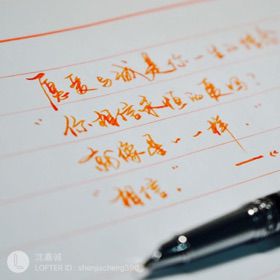 愿爱与诚是你一生的信仰
“你相信永恒的爱吗？
就像是一一样。
“相信。”
沈嘉诚
LOFTER ID : shenjiacheng390